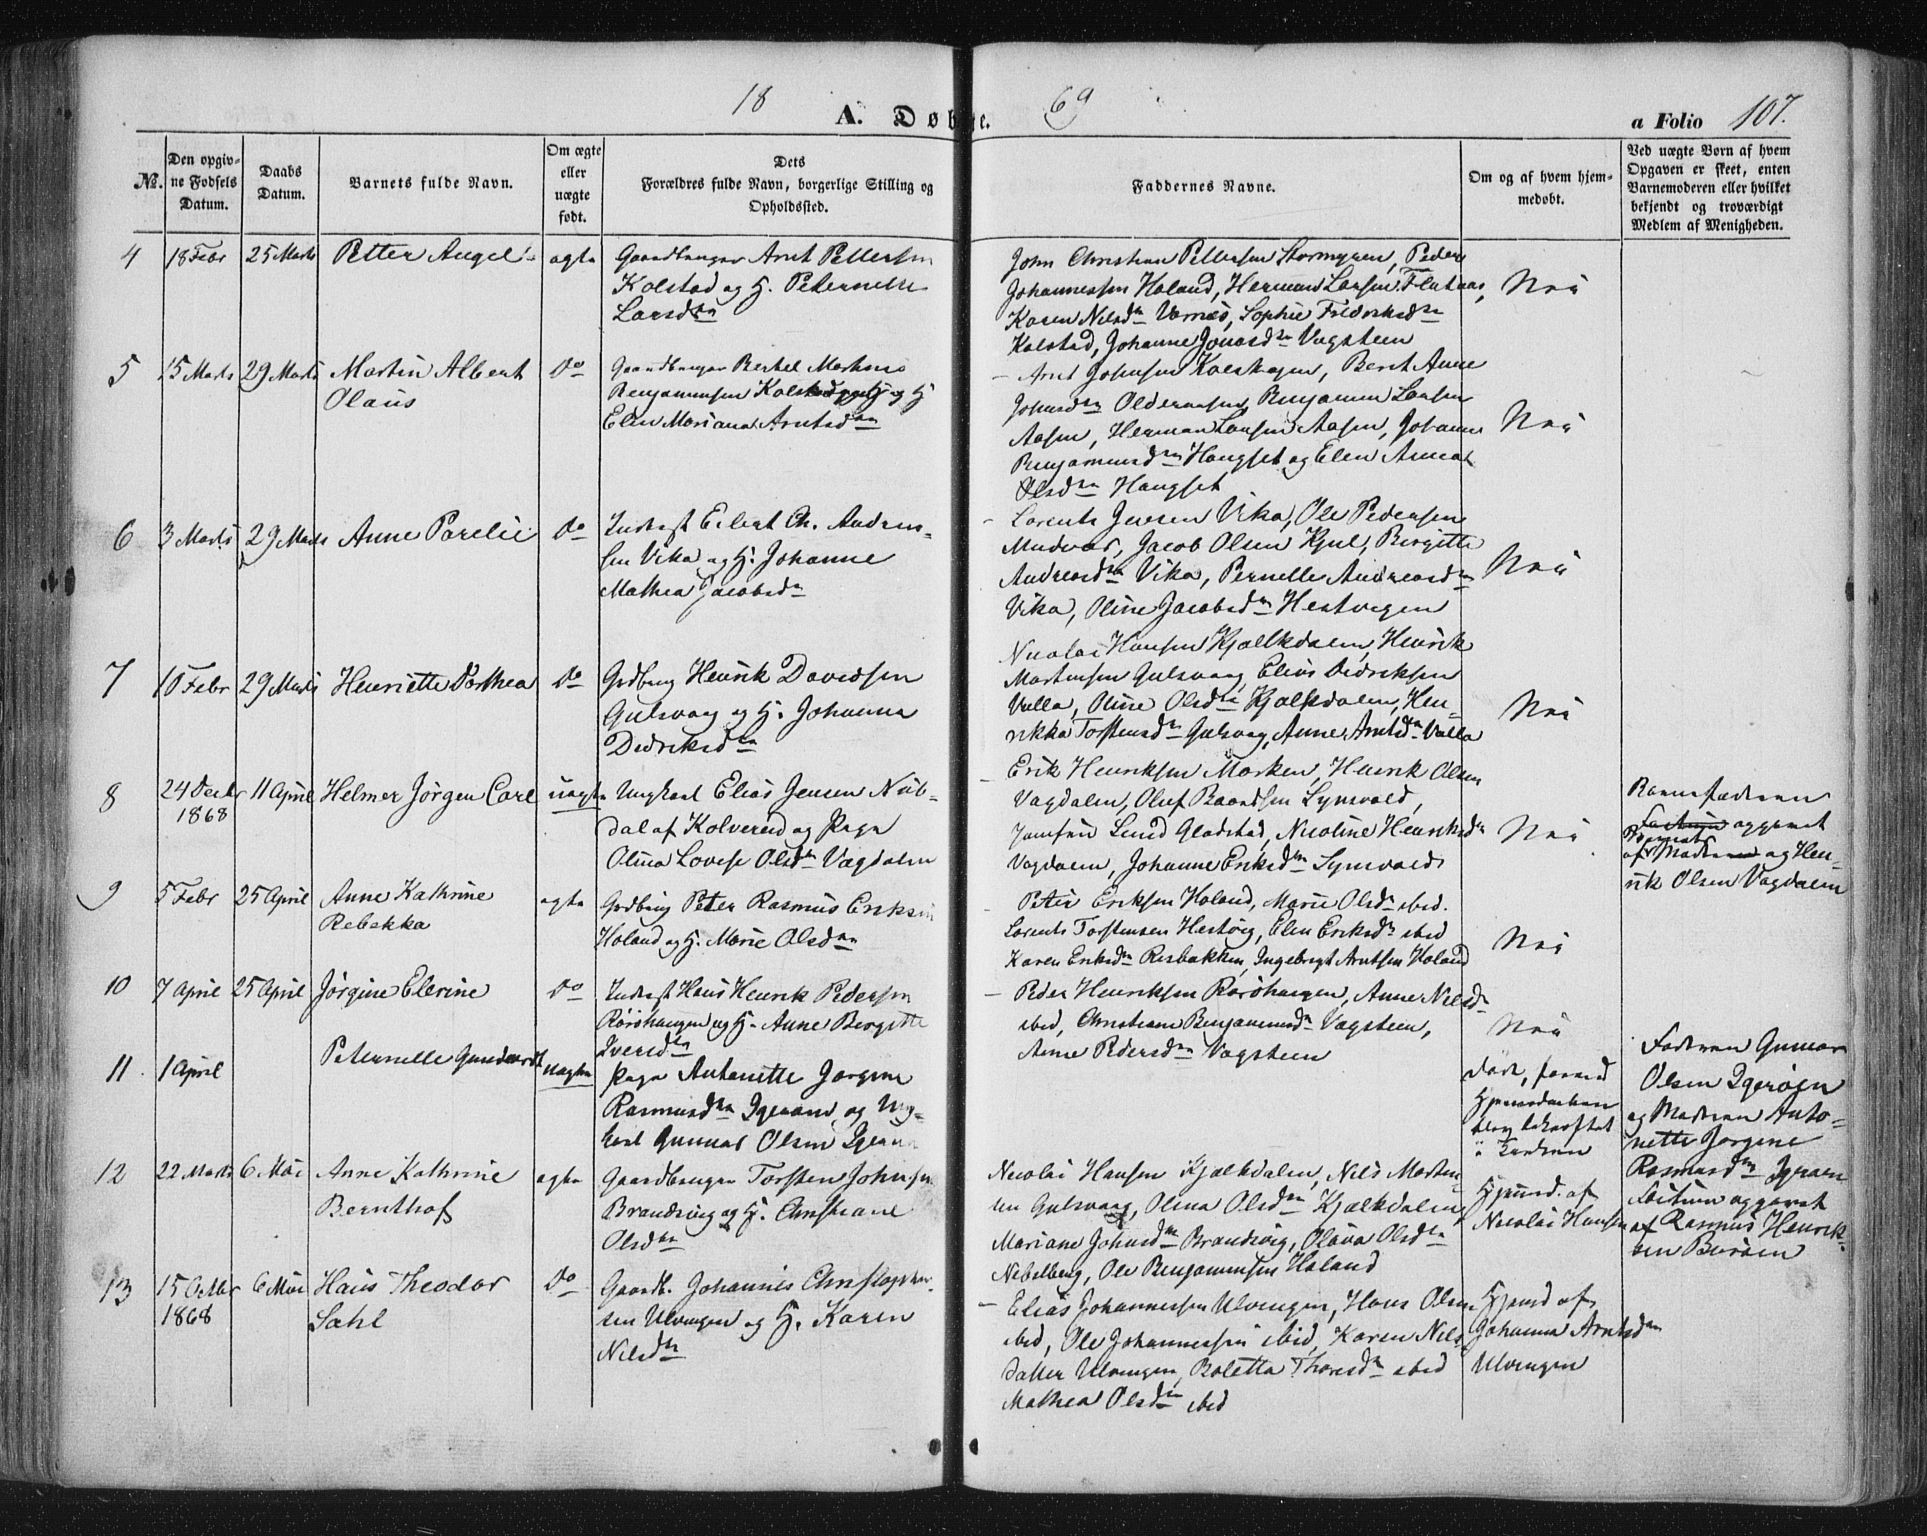 18 69
A. Døbte.
a Folio 107.
No.
Den opgiv-
ne Fødsels
Datum.
Daabs
Datum.
Barnets fulde Navn.
Om ægte
eller
uægte
født.
Dets
Forældres fulde Navn, borgerlige Stilling og
Opholdssted.
Faddernes Navne.
Om og af hvem hjem-
medøbt.
Ved uægte Børn af hvem
Opgaven er skeet, enten
Barnemoderen eller hvilket
bekjendt og troværdigt
Medlem af Menigheden.
4 18 Febr 25 Marts Petter Angel ægte
Gaardbruger Arnt Pettersen
Kolstad og H. Peternelle
Larsdtr
John Christian Pettersen Stormyren, Peder
Johannessen Holand, Herman Larsen Flataas,
Karen Nilsdtr Vornes, Sophie Fredriksdtr
Kolstad, Johanne Jonasdtr Vagsteen
Nei
5 15 Marts 29 Marts Martin Albert
Olaus
Do
Gaardbruger Bertel Martinus
Benjaminsen Kolstad og H
Elen Mariana Arntsdtr
Arnt Johnsen Kolshagen, Beret Anne
Johnsdtr Olderaasen, Benjamin Larsen
Aasen, Herman Larsen Aasen, Johanna
Benjaminsdtr Hongset og Elen Anna
Olsdtr Hongset
Nei
6 3 Marts 29 Marts Anne Parelie Do
Inderst Eilert Ch. Andrea-
sen Vika og H. Johanne
Mathea Jacobsdtr
Lorents Jensen Vika, Ole Pedersen
Mudvær, Jacob Olsen Hjul, Birgitte
Andreasdtr Vika, Pernelle Andreasdtr
Vika, Oline Jacobsdtr Hestvegen
Nei
7 10 Febr 29 Marts Henriette Dorthea Do
Grdbrug Henrik Davidsen
Gulsvaag og H. Johanna
Didriksdtr
Nicolai Hansen Kjælkdalen, Henrik
Mortensen Gulsvaag, Elias Didriksen
Valla, Oline Olsdtr Kjælkdalen, Hen-
rikka Torstensdtr Gulsvaag, Anne Arntsdtr Valla
Nei
8 24 Decbr
1868
11 April Helmer Jørgen Carl uægte
Ungkarl Elias Jensen Nub-
dal af Kolvereid og Pige
Olina Lovise Olsdtr Vagdalen
Erik Henriksen Marken, Henrik Olsen
Vagdalen, Oluf Baardsen Synsvold,
Lund Gladstad, Nicoline Henriksdtr
Vagdalen, Johanne Eriksdtr Synsvold
Nei
Barnefaderen
opgivet
af Moderen og Hen-
rik Olsen Vagdalen
9 5 Febr 25 April Anne Kathrine
Rebekka
ægte
Grdbrug Peter Rasmus Eriksen
Holand og H. Marie Olsdtr
Peter Eriksen Holand, Marie Olsdtr ibid.
Lorents Torstensen Hestvig, Elen Eriksdtr ibid
Karen Eriksdtr Risbakken, Ingebrigt Arntsen Holand
Nei
10 7 April 25 April Jørgine Elerine Do
Inderst Hans Henrik Pedersen
Rørshaugen og H. Anne Bergitte
Iversdtr
Peder Henriksen Rørshaugen, Anne Nilsdtr
ibid, Christiane Benjaminsdtr Vagsteen,
Anne Pedersdtr Vagsteen
Nei
11. 1 April
Peternelle
uægte
Pige Antonette Jørgine
Rasmusdtr Igerøen, og Ung-
karl Gunnar Olsen Igerøen
Død, forend
Hjemmedaaben
blev bekræftet
i Kirken
Faderen Gunnar
Olsen Igerøen
og Moderen Anto-
nette Jørgine
Rasmusdtr Igerøen
opgivet
af Rasmus Henrik-
sen Burøen
12 22 Marts 6 Mai Anne Kathrine
Bernthof
ægte
Gaardbruger Torsten Johnsen
Brandsvig og H. Christiane
Olsdtr
Nicolai Hansen Kjælkdalen, Nils Morten-
sen Gulsvaag, Olina Olsdtr Kjælkdalen,
Mariane Johnsdtr Brandsvig, Olava Olsdtr
Nebelberg, Ole Benjaminsen Holand
Hjemd. af
Nicolai Hansen
13 15 Octbr
1868
6 Mai Hans Theodor
Sahl
Do
Gaardb. Johannes Christopher-
sen Ulvingen og H. Karen
Nilsdtr
Elias Johannessen Ulvingen, Hans Olsen
ibid, Ole Johannessen ibid, Karen Nils-
datter Ulvingen, Boletta Thoresdtr ibid
Mathea Olsdtr ibid
Hjemd af
Johanna Arntsdtr
Ulvingen